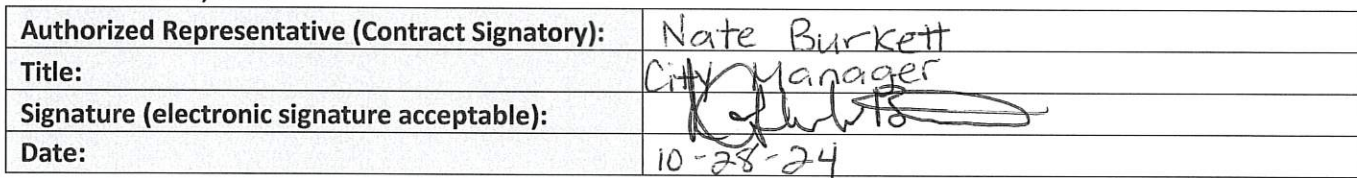 Authorized Representative (Contract Signatory): Nate Burkett
Title: City Manager
Signature (electronic signature acceptable):
Date: 10-28-24